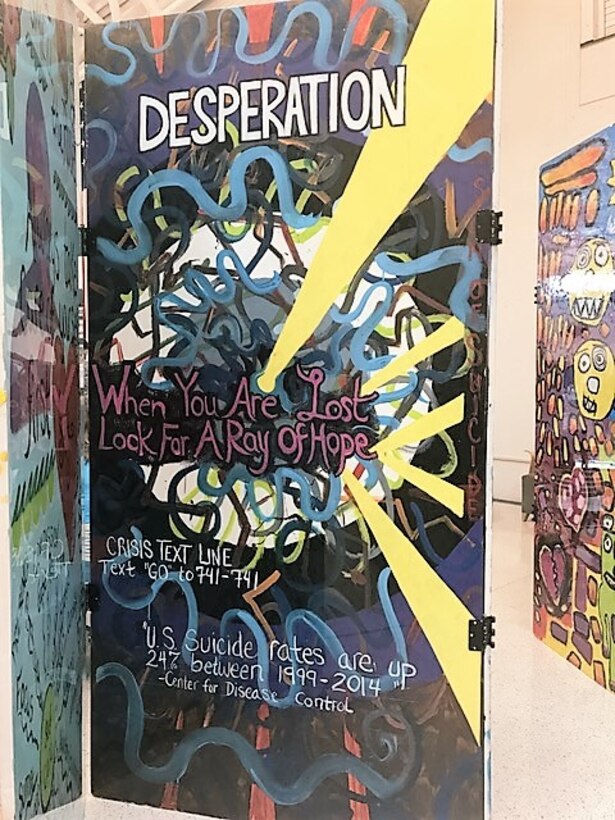 DESPERATION
When You Are Lost
Look For A Ray Of Hope
CRISIS TEXT LINE
Text "GO" to 741-741
"U.S. Suicide rates are up
24% between 1999-2014"
-Center for Disease Control